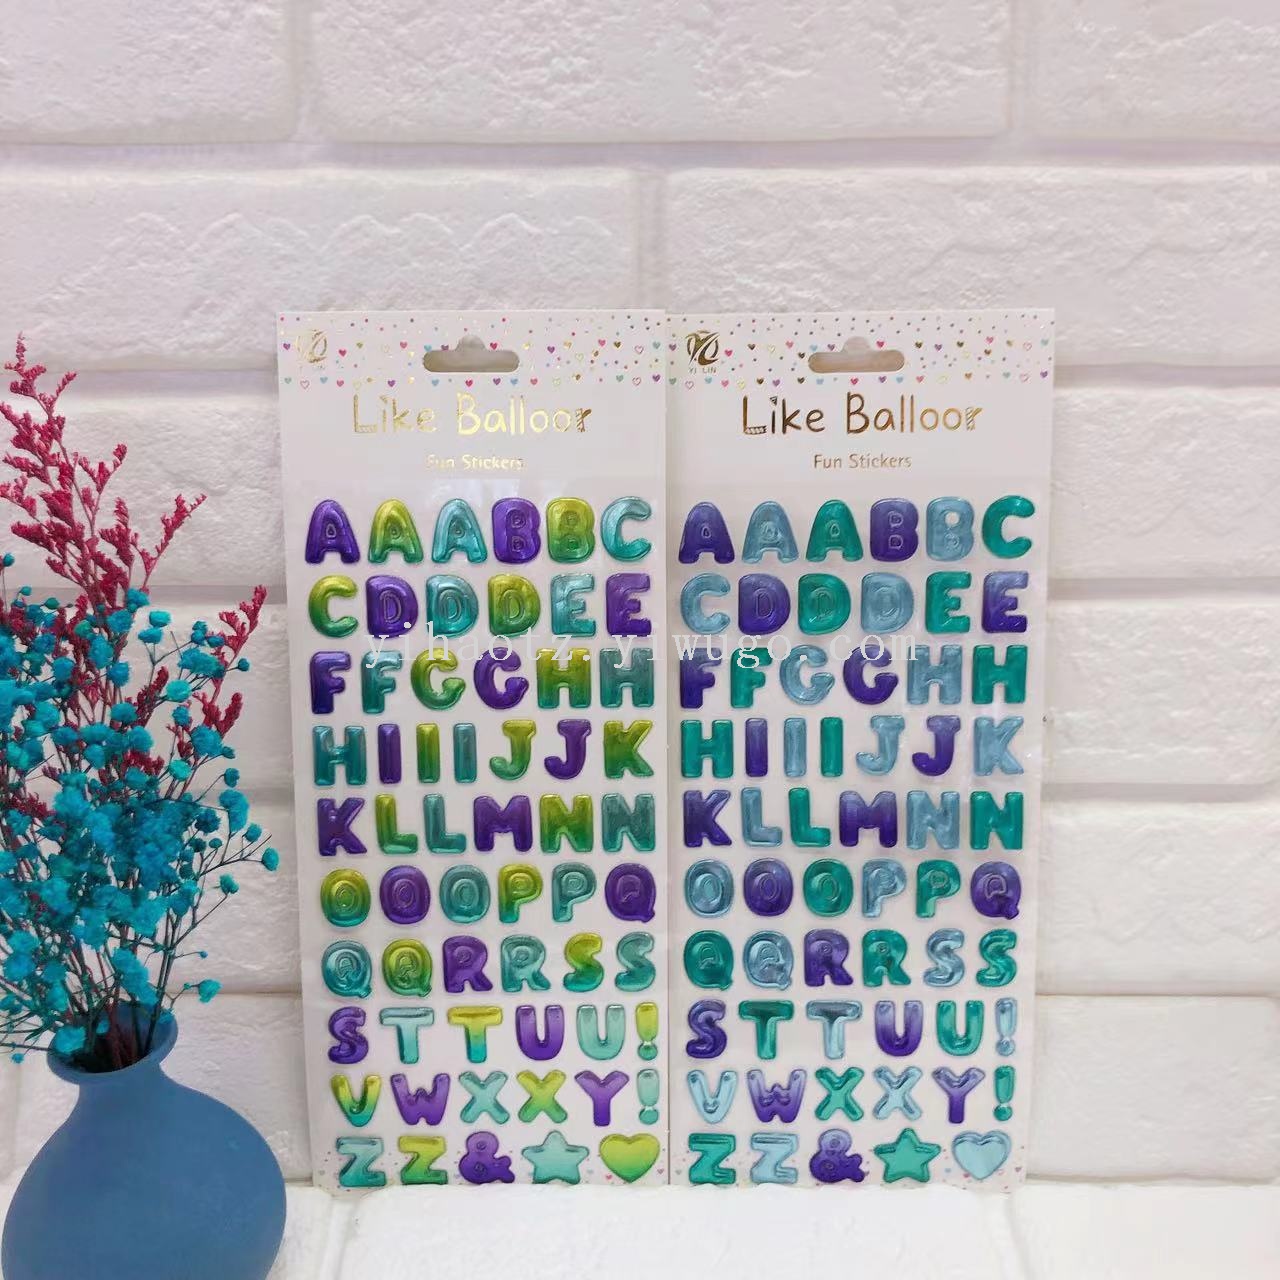 YI LIN
Like Balloor
Fun Stickers
A A A B B C
C D D D E E
F F G G H H
H I I I J J K
K L L M N N
O O O P P Q
Q Q R R S S
S T T U U !
V W X X Y !
Z Z &
YI LIN
Like Balloor
Fun Stickers
A A A B B C
C D D D E E
F F G G H H
H I I I J J K
K L L M N N
O O O P P Q
Q Q R R S S
S T T U U !
V W X X Y !
Z Z &
yihaotz.yiwugo.com